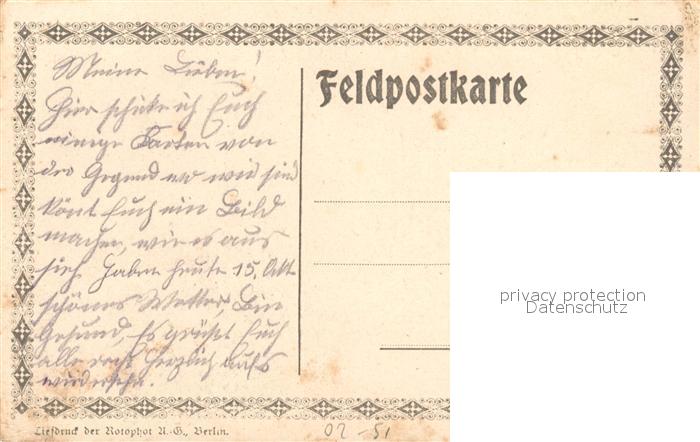 Meine Lieben!
Hier schicke ich Euch
einige Karten von
der Gegend wo wir sind
könt Euch ein Bild
machen, wie es aus
sieh. Haben heute 15. Okt.
schönes Wetter, Bin
Gesund, Es grüßt Euch
alle recht herzlich aufs
wiedersehn.
Feldpostkarte
privacy protection
Datenschutz
Tiefdruck der Rotophot A.-G., Berlin.
02-51